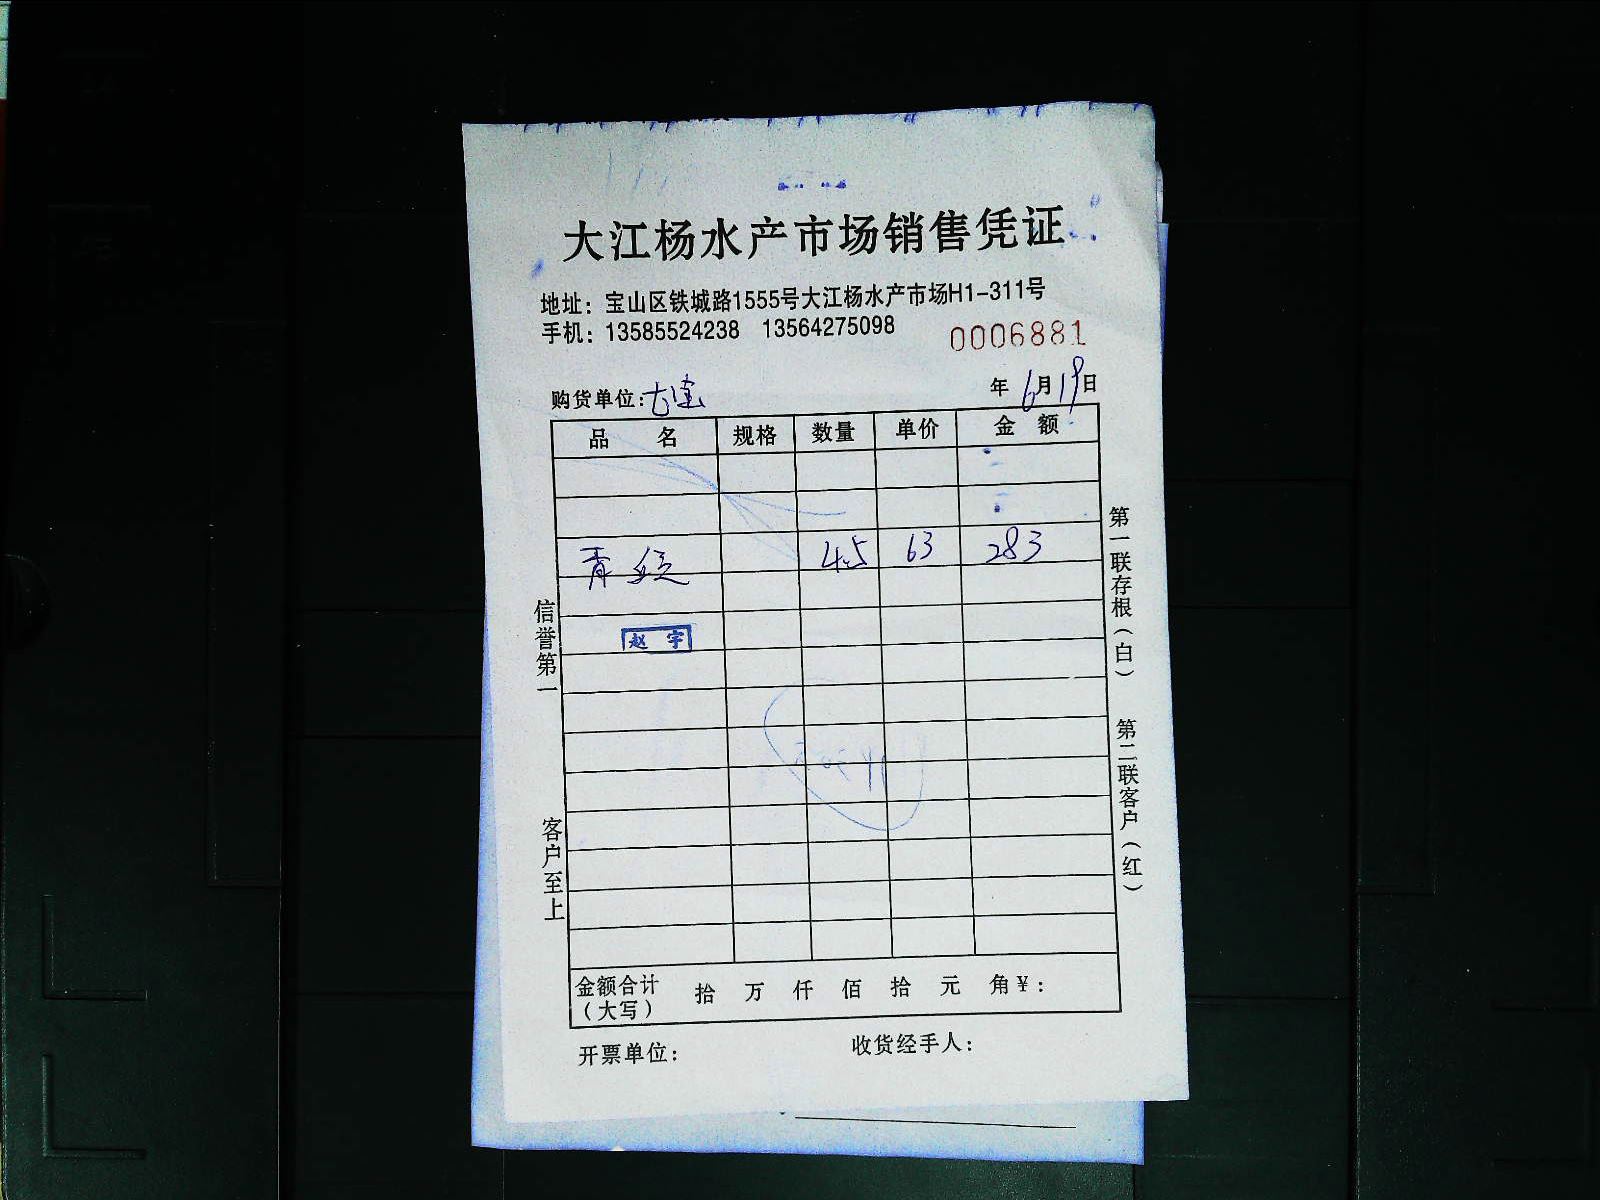 大江杨水产市场销售凭证
地址：宝山区铁城路1555号大江杨水产市场H1-311号
手机：13585524238 13564275098
0006881
购货单位：
年 6月19日
品 名 规格 数量 单价 金 额
青 4.5 63 283
赵 宇
信誉第一
客户至上
第一联存根（白）
第二联客户（红）
金额合计（大写） 拾 万 仟 佰 拾 元 角 ￥：
开票单位： 收货经手人：